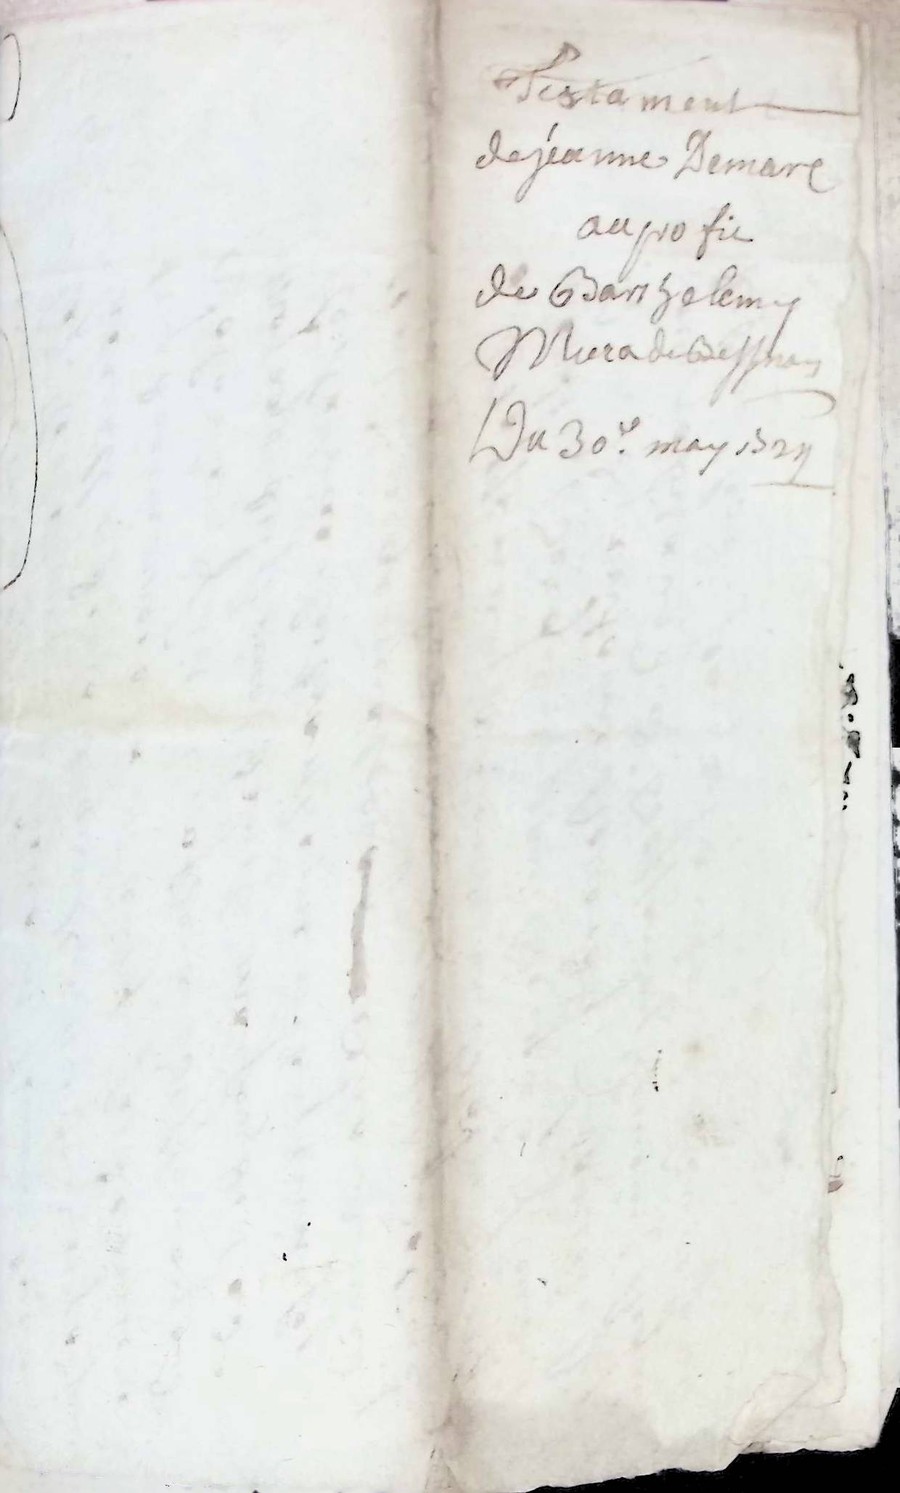 Testament
de jeanne Demarc
au profit
de Barthelemy
Mura de
Du 30e may